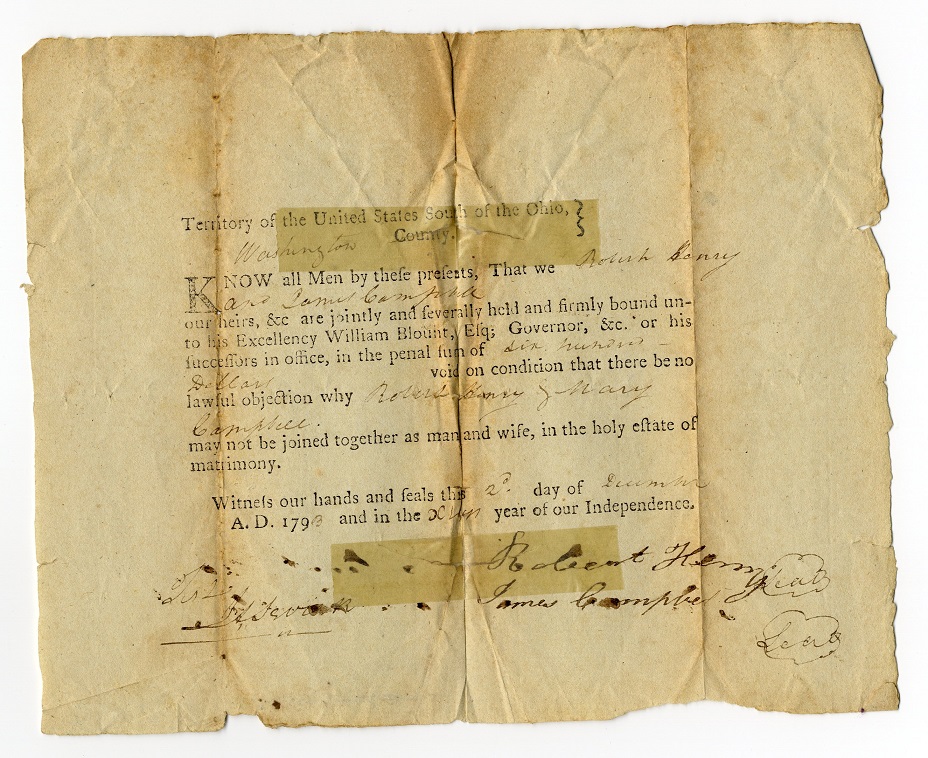 Territory of the United States South of the Ohio, }
Washington County.
KNOW all Men by theſe preſents, That we Robert Henry
and James Campbell
our heirs, &c are jointly and ſeverally held and firmly bound un-
to his Excellency William Blount, Eſq; Governor, &c. or his
ſucceſſors in office, in the penal ſum of six hundred
Dollars void on condition that there be no
lawful objection why Robert Henry & Mary
Campbell.
may not be joined together as man and wife, in the holy eſtate of
matrimony.
Witneſs our hands and ſeals this 2d. day of December
A. D. 1793 and in the year of our Independence.
Robert Henry Seal
Test
James Campbell
Seal